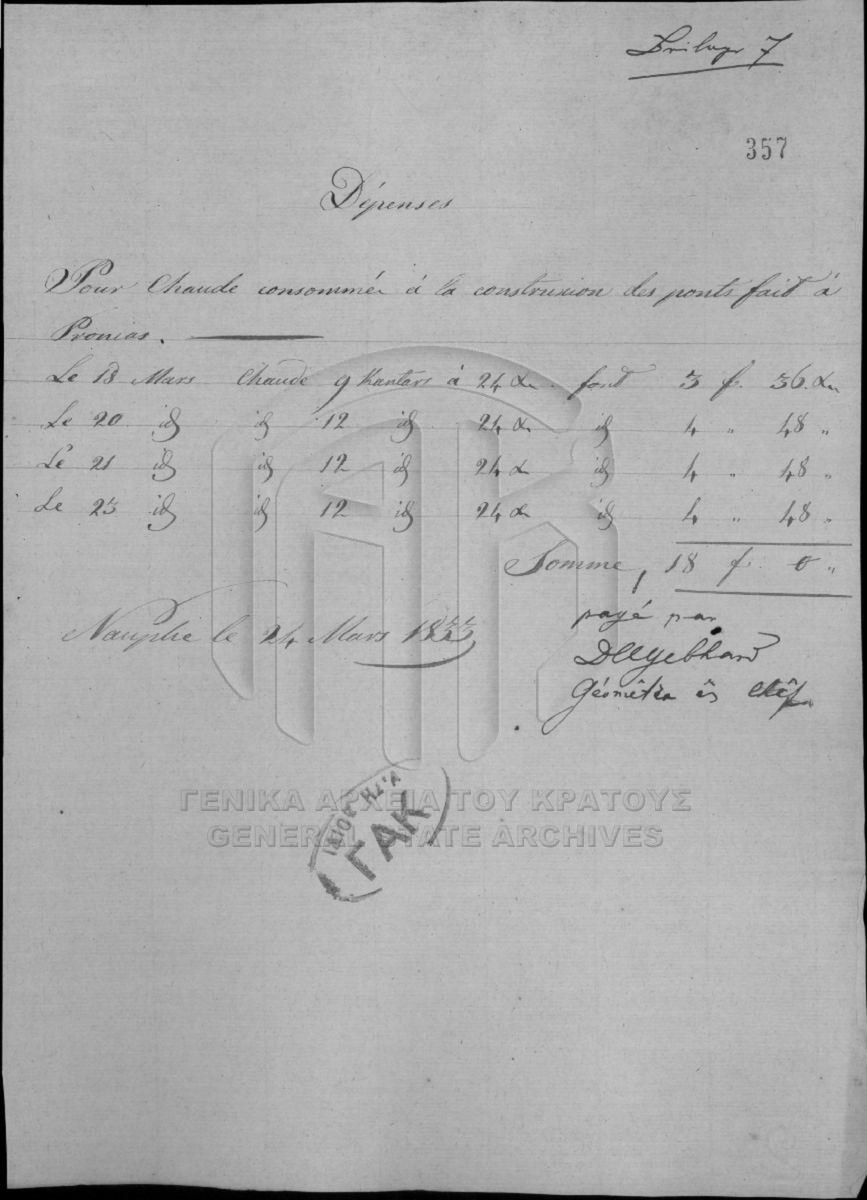 Beilage 7
357
Dépenses
Pour Chaude consommée à la construxion des ponts fait à
Pronias.
Le 18 Mars Chaude 9 Kantars à 24 x font 3 f. 36 x
Le 20 id id 12 id 24 x id 4 " 48 "
Le 21 id id 12 id 24 x id 4 " 48 "
Le 23 id id 12 id 24 x id 4 " 48 "
Somme, 18 f. 0 "
Nauplie le 24 Mars 1833
payé par
Géomètre en chêf
ΓΑΚ
ΓΕΝΙΚΑ ΑΡΧΕΙΑ ΤΟΥ ΚΡΑΤΟΥΣ
GENERAL STATE ARCHIVES